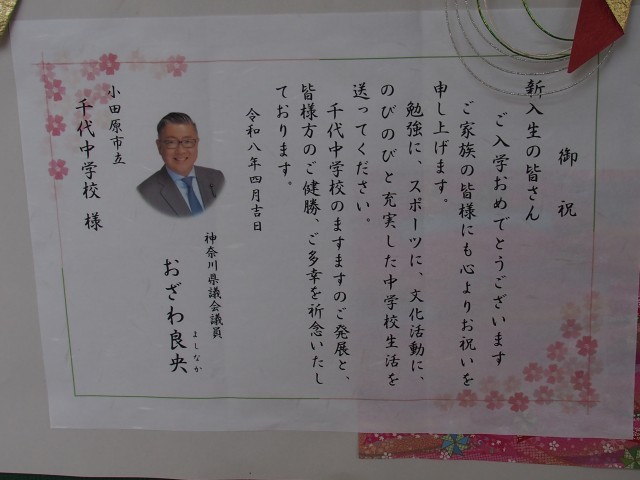 御祝
新入生の皆さん
ご入学おめでとうございます
ご家族の皆様にも心よりお祝いを
申し上げます。
勉強に、スポーツに、文化活動に、
のびのびと充実した中学校生活を
送ってください。
千代中学校のますますのご発展と、
皆様方のご健勝、ご多幸を祈念いたし
ております。
令和八年四月吉日
神奈川県議会議員
おざわ良央
よしなか
小田原市立
千代中学校 様